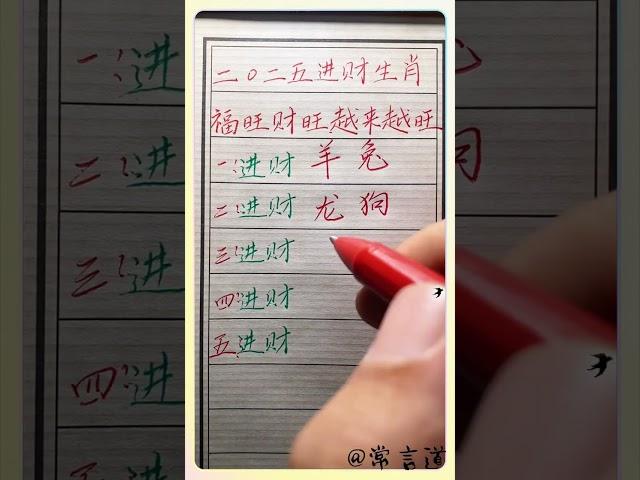 二〇二五进财生肖
福旺财旺越来越旺
一:进财 羊兔
二:进财 龙狗
三:进财
四:进财
五:进财
@常言道